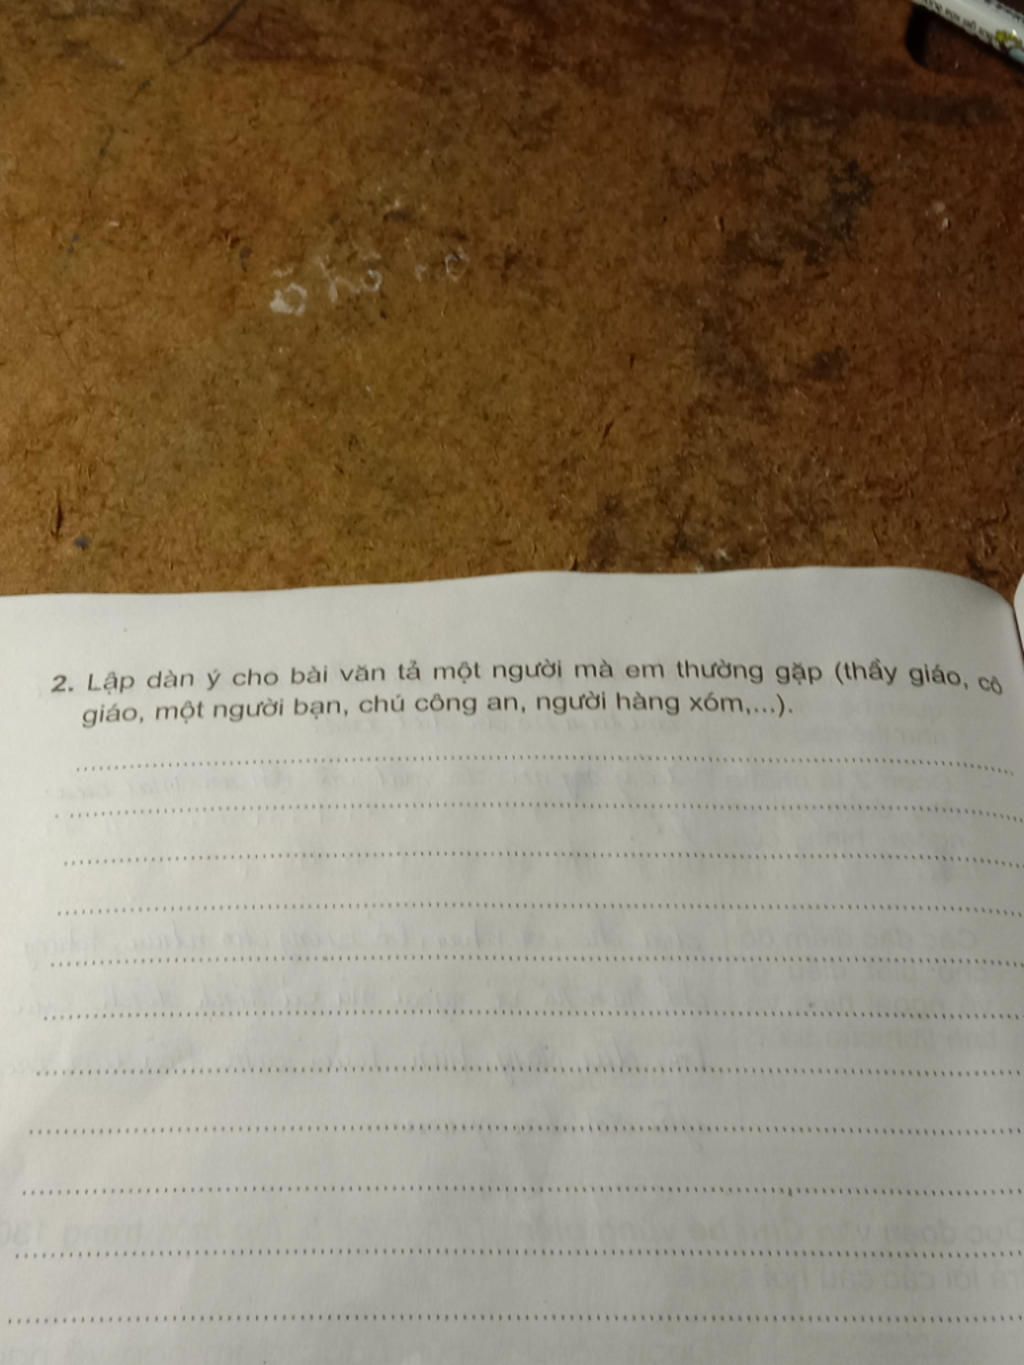 2. Lập dàn ý cho bài văn tả một người mà em thường gặp (thầy giáo, cô
giáo, một người bạn, chú công an, người hàng xóm,...).